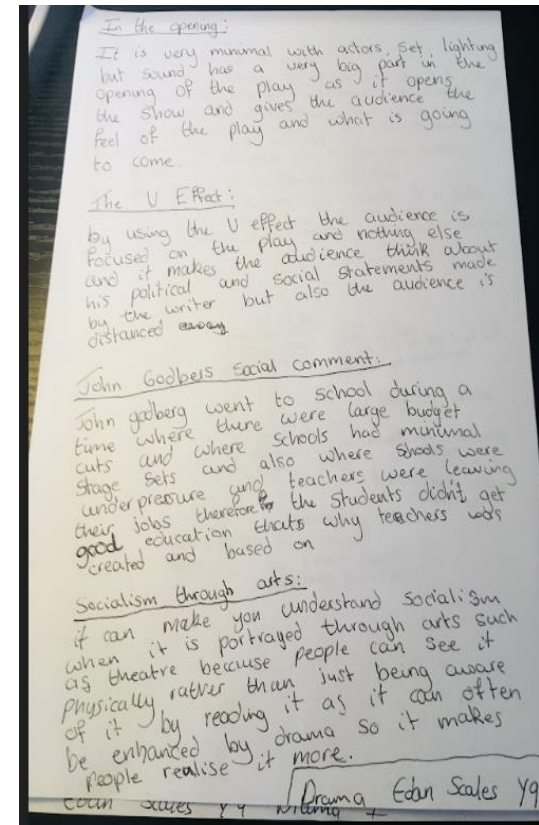 In the opening:
It is very minimal with actors, set, lighting
but sound has a very big part in the
opening of the play as it opens
the show and gives the audience the
feel of the play and what is going
to come.
The V Effect:
by using the V effect the audience is
focused on the play and nothing else
and it makes the audience think about
his political and social statements made
by the writer but also the audience is
distanced away
John Godbers social comment:
John godberg went to school during a
time where there were large budget
cuts and where schools had minimal
stage sets and also where shools were
under pressure and teachers were leaving
their jobs therefore the students didn't get
good education thats why teechers was
created and based on
Socialism through arts:
it can make you understand socialism
when it is portrayed through arts such
as theatre because people can see it
physically rather than just being aware
of it by reading it as it can often
be enhanced by drama so it makes
people realise it more.
Drama Edan Scales Y9
Edan Scales Y9 Drama